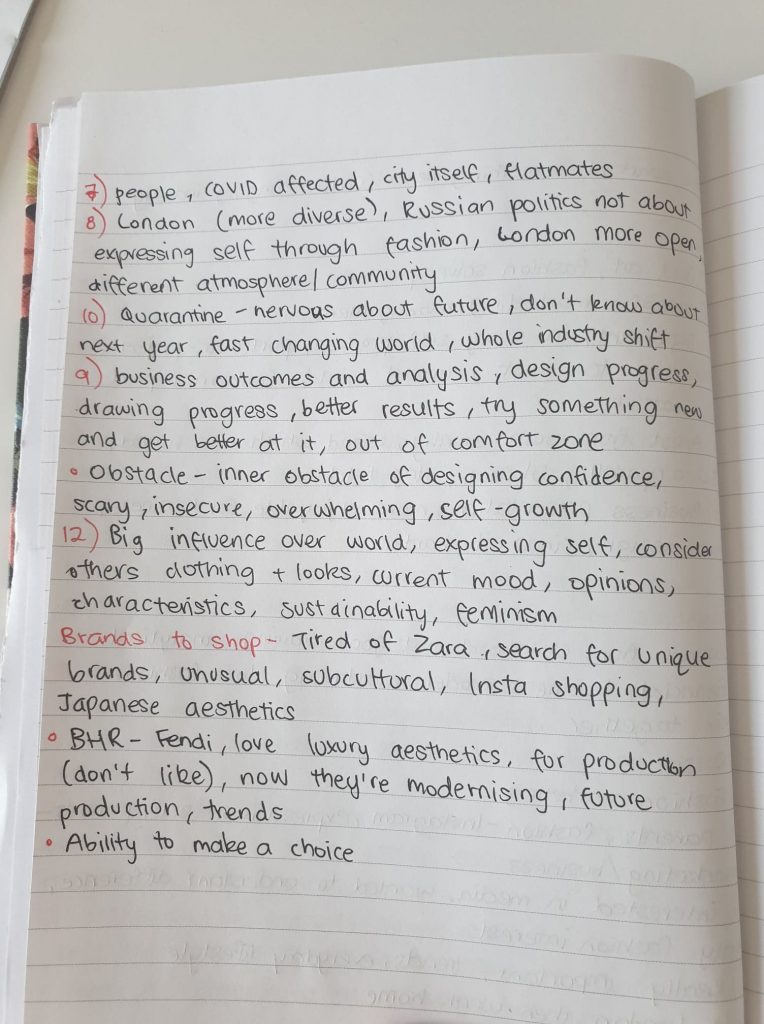 7) people, COVID affected, city itself, flatmates
8) London (more diverse), Russian politics not about
expressing self through fashion, London more open,
different atmosphere/community
10) Quarantine - nervous about future, don't know about
next year, fast changing world, whole industry shift
9) business outcomes and analysis, design progress,
drawing progress, better results, try something new
and get better at it, out of comfort zone
• Obstacle - inner obstacle of designing confidence,
scary, insecure, overwhelming, self-growth
12) Big influence over world, expressing self, consider
others clothing + looks, current mood, opinions,
characteristics, sustainability, feminism
Brands to shop - Tired of Zara, search for unique
brands, unusual, subcultural, Insta shopping,
Japanese aesthetics
• BHR - Fendi, love luxury aesthetics, fur production
(don't like), now they're modernising, future
production, trends
• Ability to make a choice